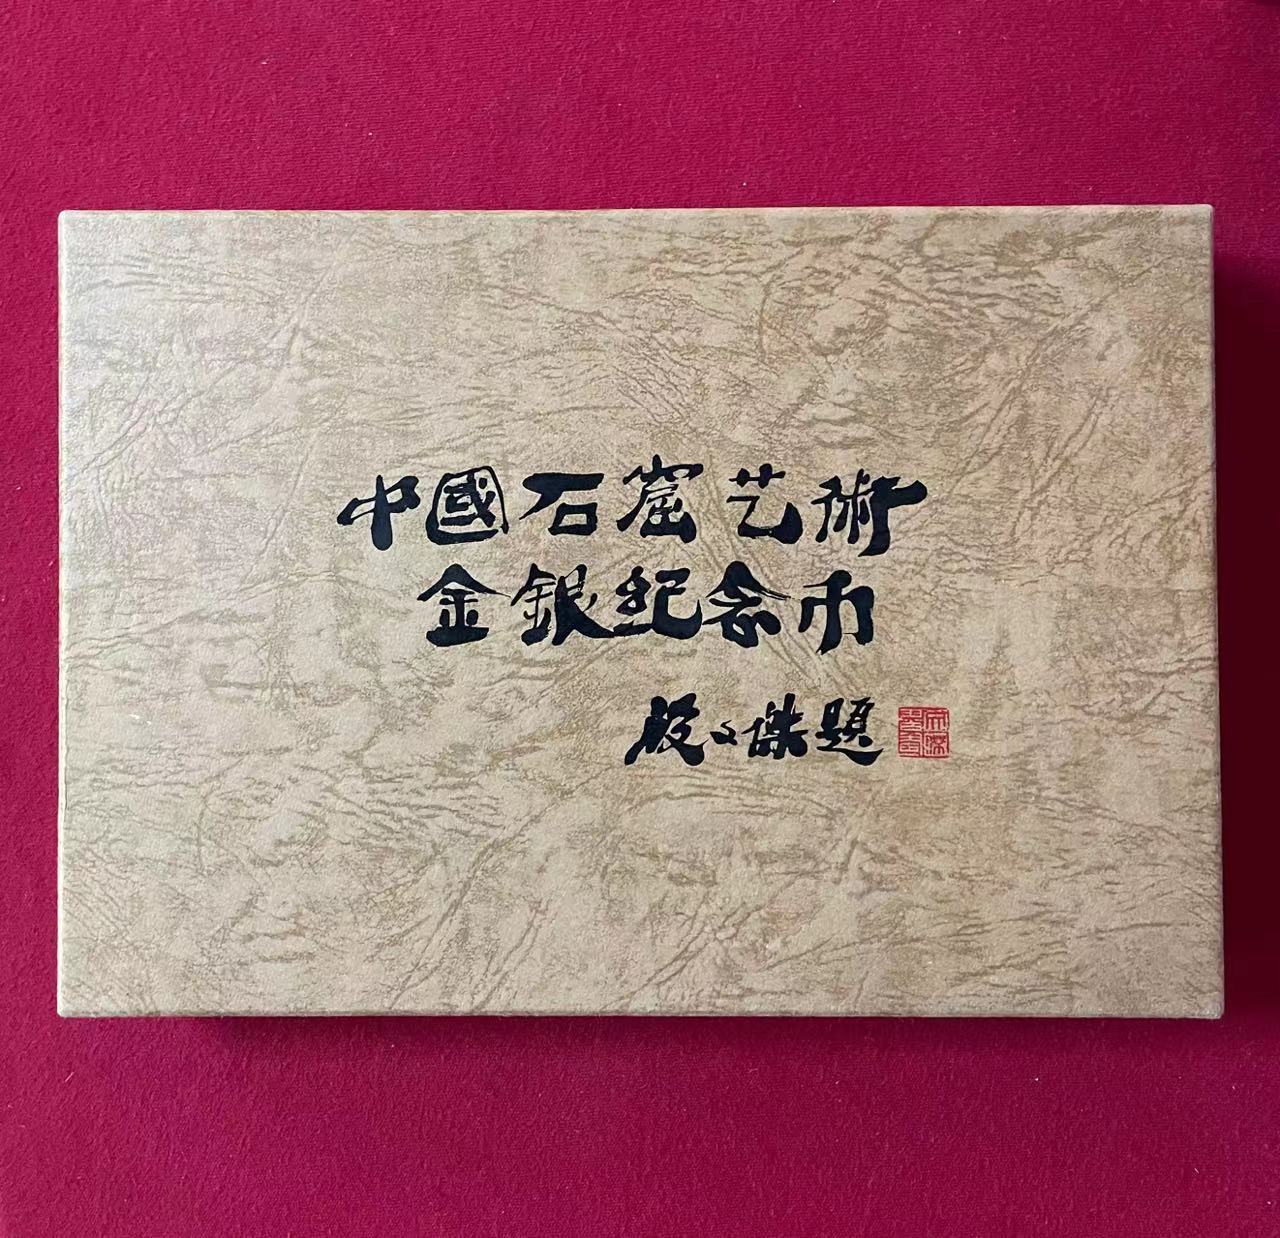 中國石窟艺術
金銀纪念币
段文傑題